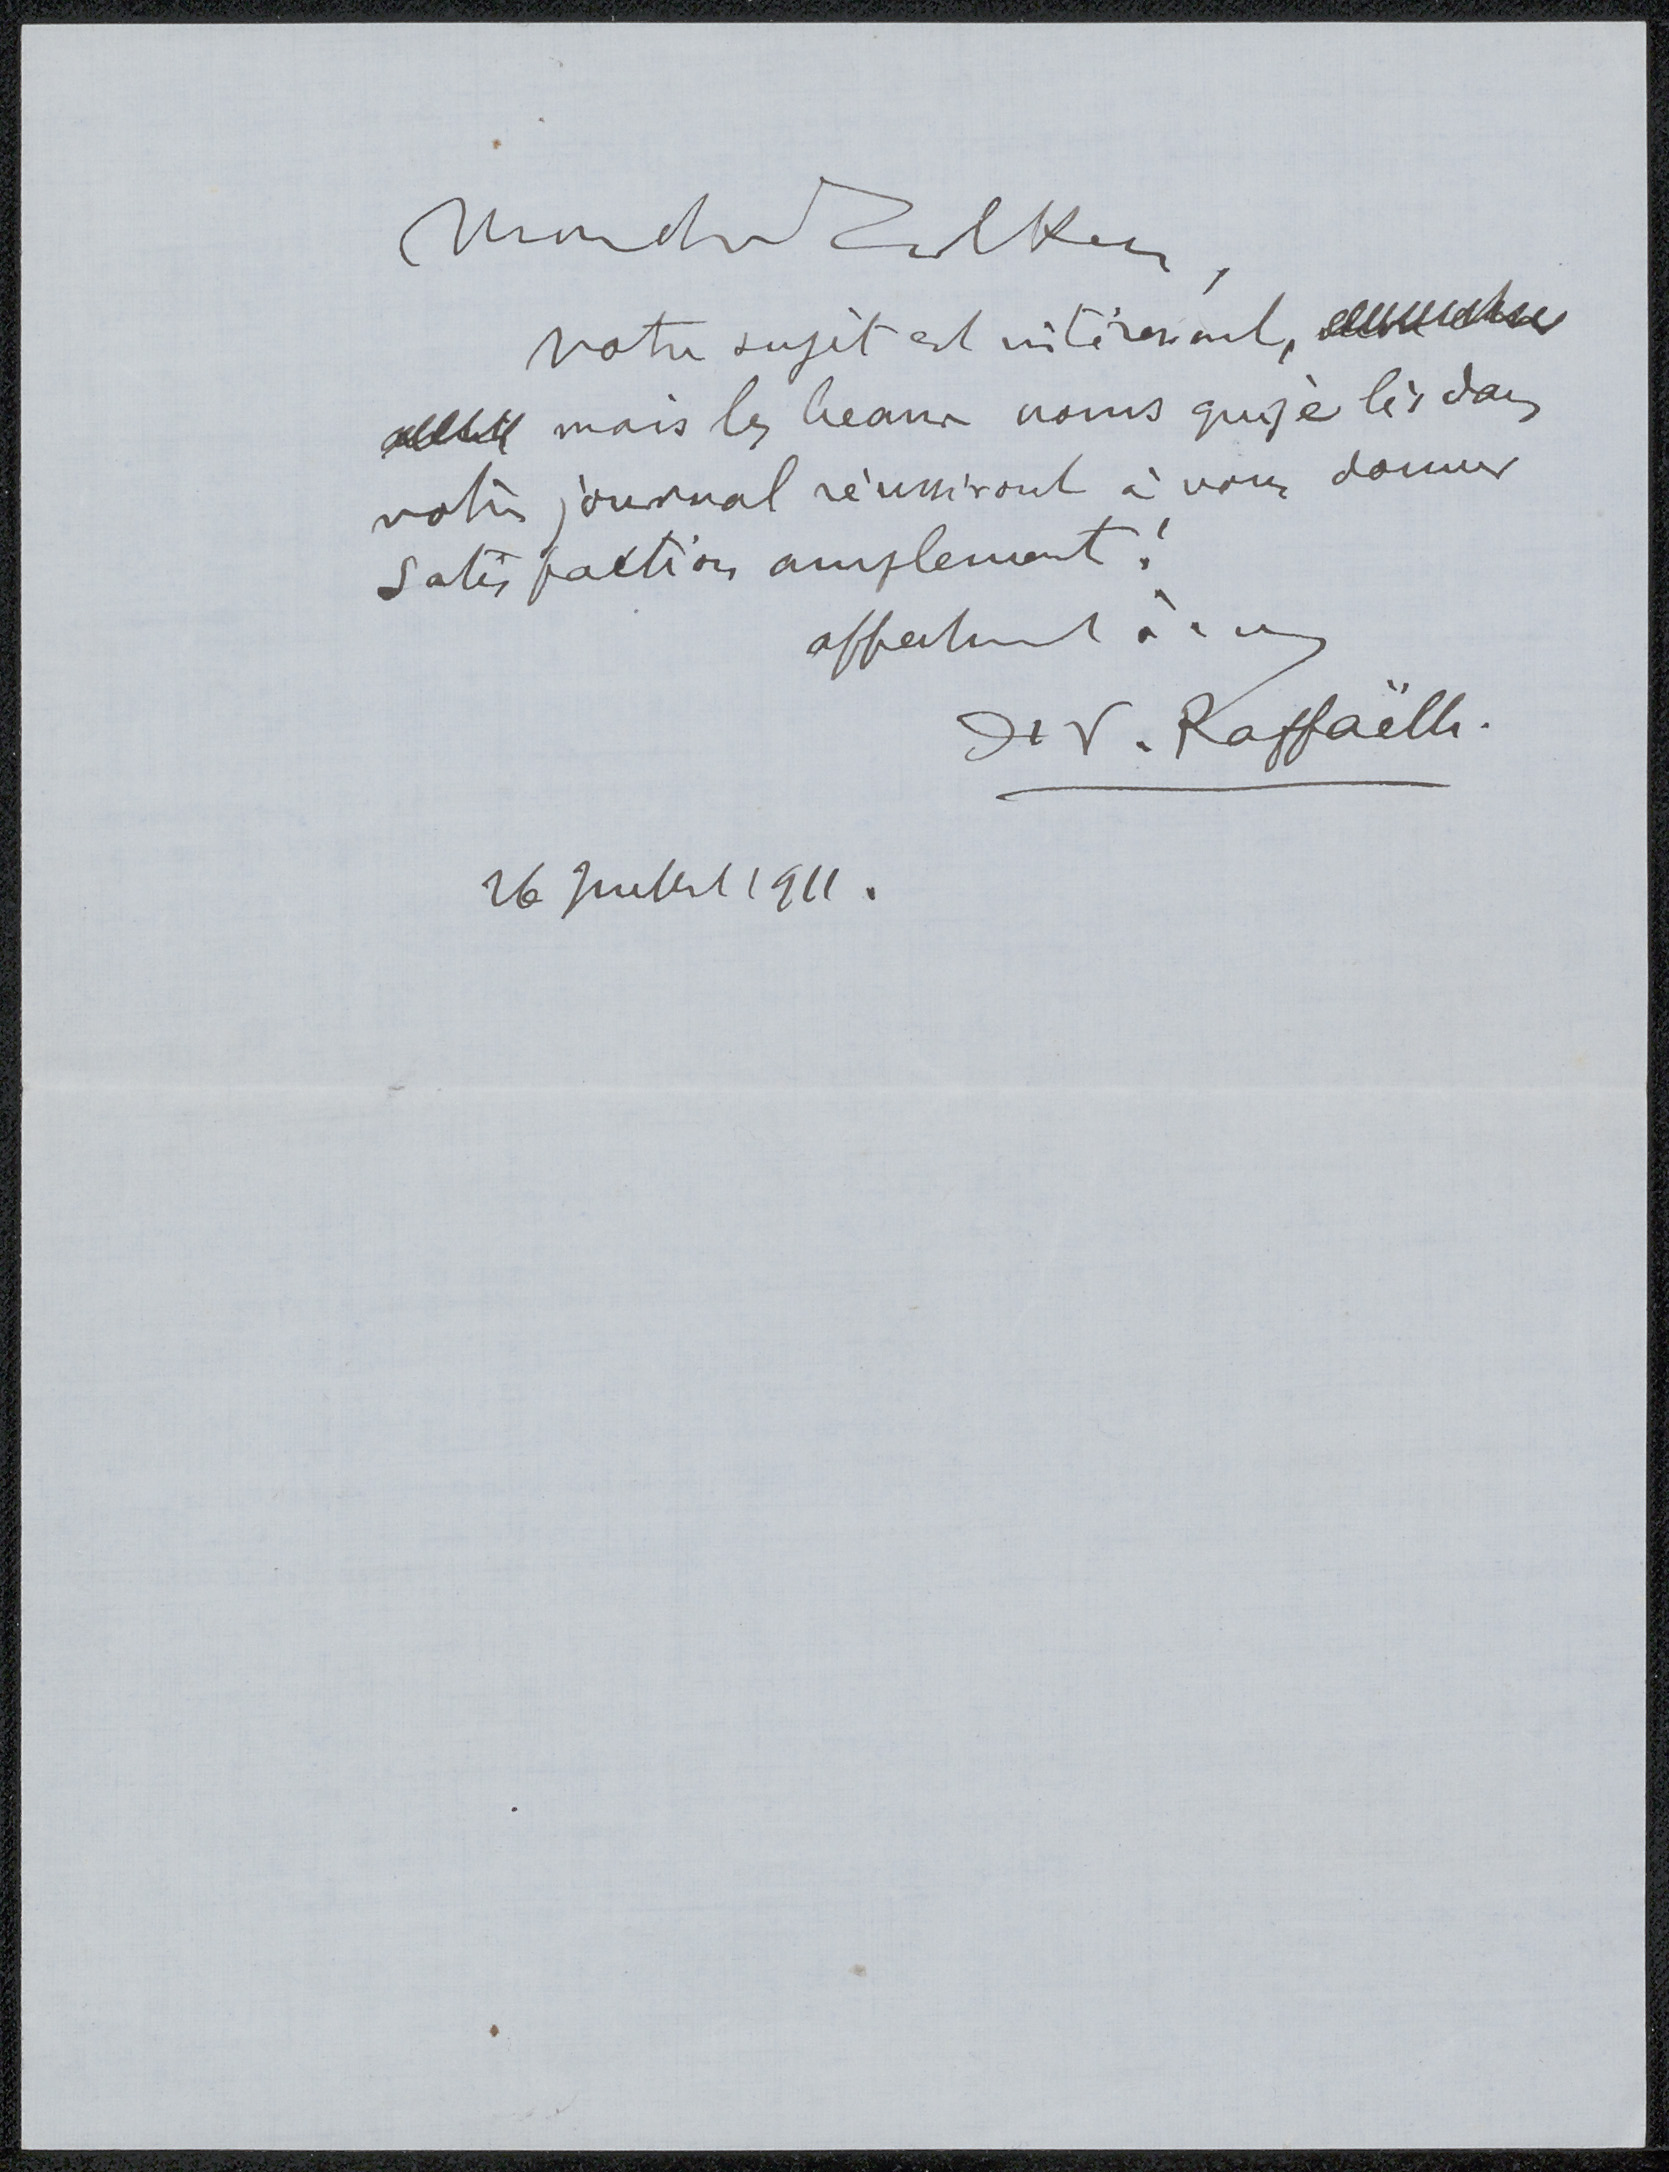 Mon cher Zilcken,
votre sujet est intéressant,
mais les beaux noms que je lis dans
votre journal réussiront à vous donner
satisfaction amplement !
affectueusement à vous
J. F. Raffaëlli.
26 Juillet 1911.